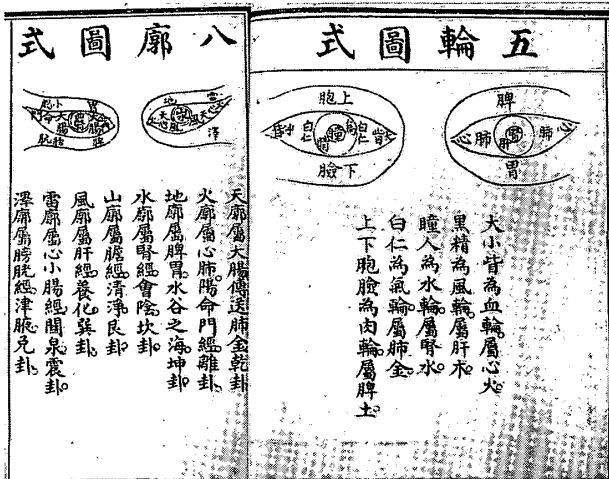 五輪圖式
脾
心肺腎肝肺心
胃
胞上
白仁
瞳
白仁
大眥
瞼下
大小眥為血輪屬心火
黑精為風輪屬肝木
瞳人為水輪屬腎水
白仁為氣輪屬肺金
上下胞瞼為肉輪屬脾土
八廓圖式
地
澤
天廓屬大腸傳送肺金乾卦
火廓屬心肺陽命門經離卦
地廓屬脾胃水谷之海坤卦
水廓屬腎經會陰坎卦
山廓屬膽經清淨艮卦
風廓屬肝經養化巽卦
雷廓屬心小腸經關泉震卦
澤廓屬膀胱經津液兌卦